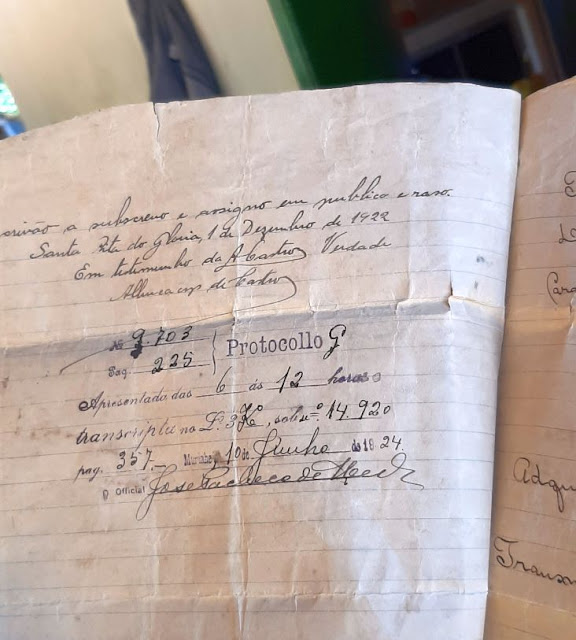 crivão a subscrevo e assigno em publico e raso.
Santa Rita do Gloria, 1 de Dezembro de 1922
Em testimunho da Verdade
de Castro
No 9.703
Pag. 225
Protocollo G
Apresentada das 6 ás 12 horas
transcripta no Lº 3 K, sob nº 14.920
pag. 357.- Muriahé 10 de Junho de 1924.
O Official José Pacheco de
Adqu
Transm